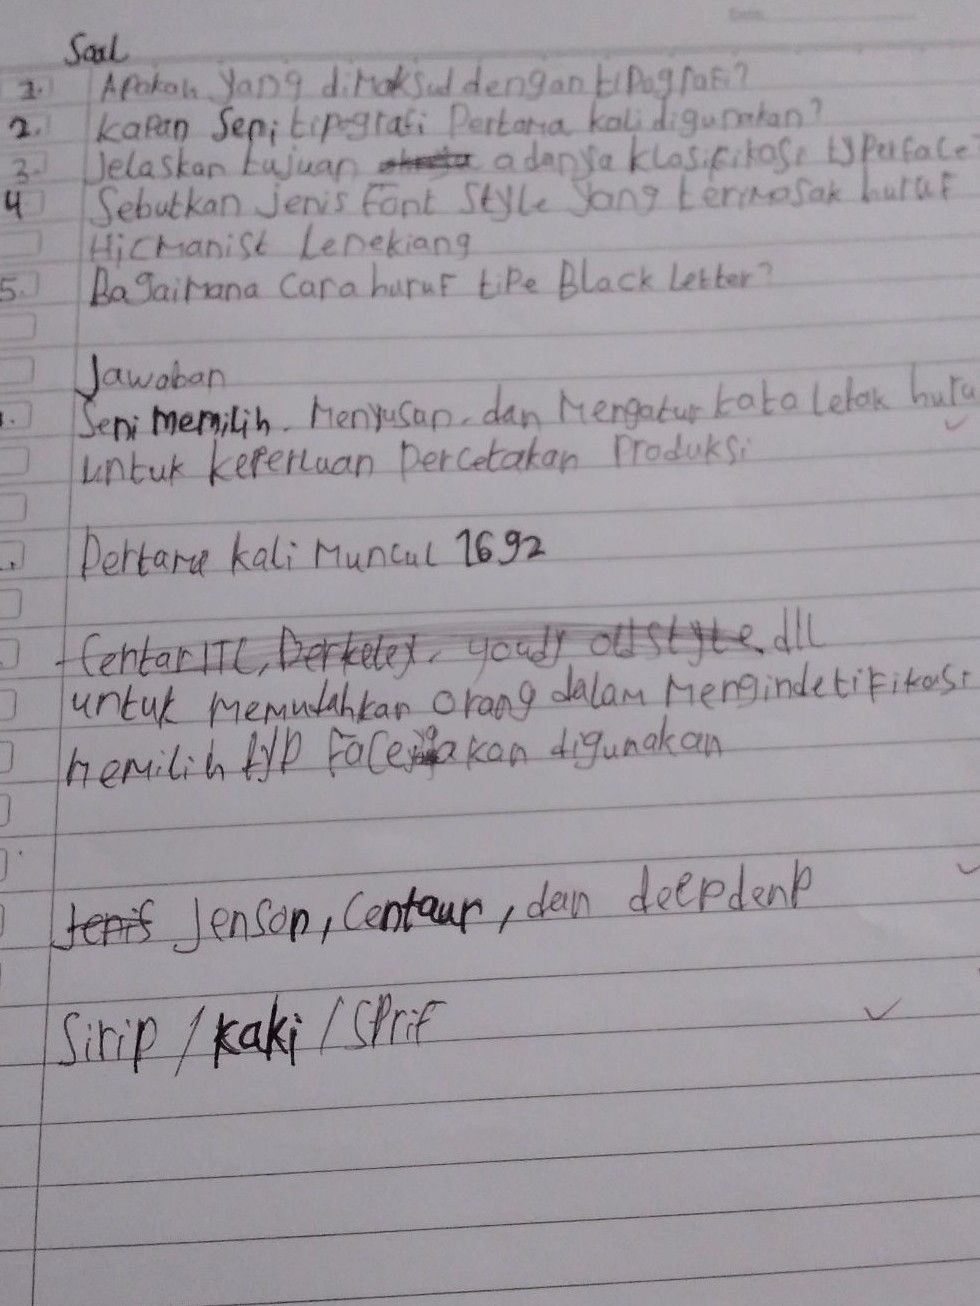 Soal
1. Apakah yang dimaksud dengan tipografi?
2. Kapan Seni tipografi Pertama kali digunakan?
3. Jelaskan tujuan adanya klasifikasi typerface
4 Sebutkan jenis Font Style yang termasak huruf
Hicmanist Lenekiang
5. Bagaimana Cara huruf tipe Black Letter?
Jawaban
1. Seni memilih. Menyusan. dan Mengatur tata letak huru
untuk keperluan percetakan Produksi
. Pertama kali Muncul 1692
Centar ITC, Berkeley, youdy old style, dll
untuk memudahkan Orang dalam Mengindetifikasi
Memilih typ Face akan digunakan
Jenis Jenson, Centaur, dan deepdenp
Sirip / kaki / Sprif